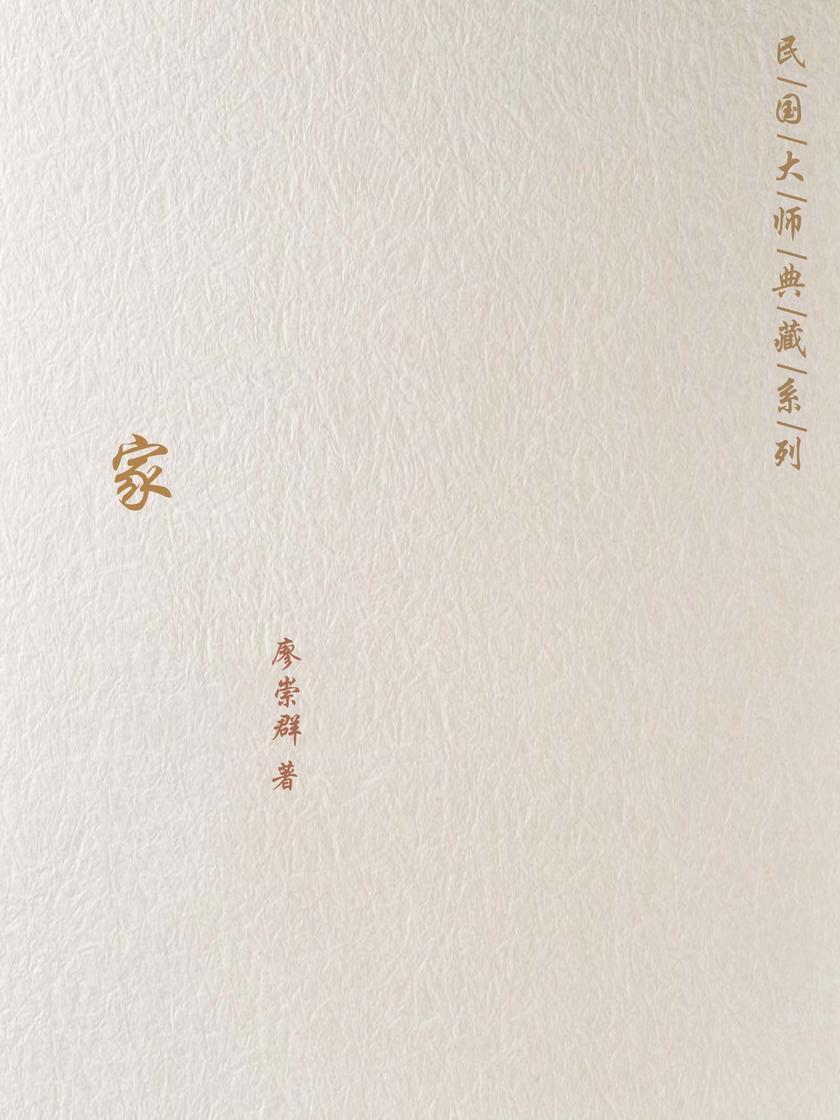 民|国|大|师|典|藏|系|列
家
廖崇群 著